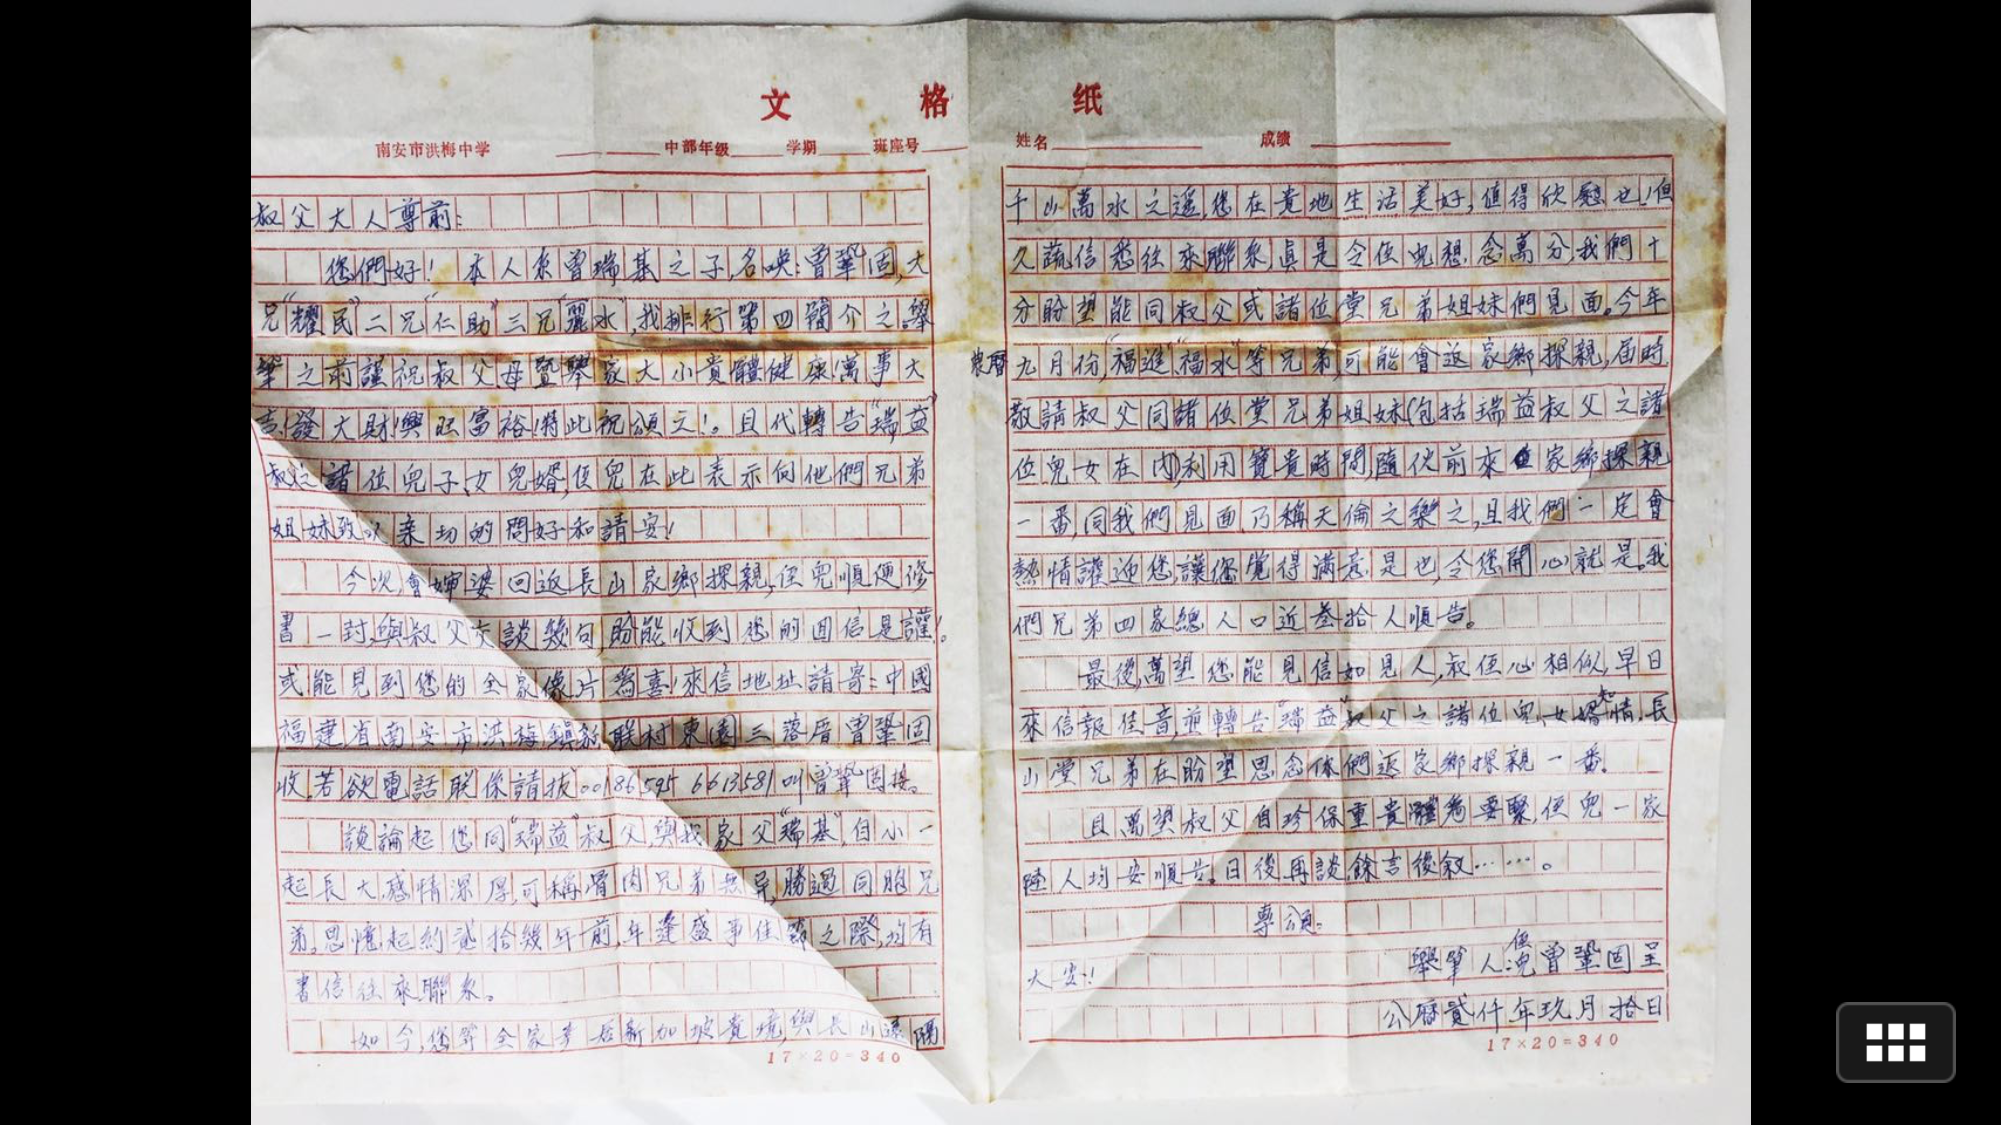 文格纸
南安市洪梅中学 中部年级 学期 班座号 姓名 成绩
叔父大人尊前:
您們好!本人系曾瑞基之子,名唤:曾鞏固,大
兄"耀民"二兄"仁助"三兄"麗水",我排行第四簡介之.舉
筆之前謹祝叔父母暨舉家大小貴體健康!萬事大
吉!發大財!興旺富裕!特此祝頌之!。且代轉告"瑞益"
叔父諸位兒子女兒婿,侄兒在此表示向他們兄弟
姐妹致以亲切的問好和請安!
今次,會婶婆回返長山家鄉探親,侄兒順便修
書一封,與叔父交談幾句,盼能收到您的回信是謹!。
或能見到您的全家像片為喜!來信地址請寄:中國
福建省南安市洪梅鎮新联村東園三落厝曾鞏固
收.若欲電話联係請拔00186 595 6613581叫曾鞏固接。
談論起您同"瑞益"叔父,與我家父"瑞基",自小一
起長大,感情深厚,可稱骨肉兄弟無异,勝過同胞兄
弟,思憶起約貳拾幾年前,年逢盛事佳節之際,均有
書信往來聯系。
如今,您等全家居新加坡貴境,與長山遠隔
17×20=340
千山萬水之遥,您在貴地生活美好,值得欣慰也!但
久疏信悉往來聯系,真是令侄兒想念萬分,我們十
分盼望能同叔父或諸位堂兄弟姐妹們見面。今年
農曆九月份,"福進""福水"等兄弟,可能會返家鄉探親,届時
敬請叔父同諸位堂兄弟姐妹(包括瑞益叔父之諸
位兒女在内)利用寶貴時間,隨伙前來家鄉探親
一番,同我們見面,乃稱天倫之樂之,且我們一定會
熱情謹迎您,讓您覺得滿意是也,令您開心就是.我
們兄弟四家總人口近叁拾人順告。
最後,萬望您能見信如見人,叔侄心相似,早日
來信報佳音,並轉告"瑞益"叔父之諸位兒女婿知情,長
山堂兄弟在盼望思念你們返家鄉探親一番。
且萬望叔父自珍保重貴體為要緊,侄兒一家
陸人均安順告。日後再談,餘言後叙……。
專頌:
大安!
舉筆人:侄兒曾鞏固呈
公曆貳仟年玖月拾日
17×20=340